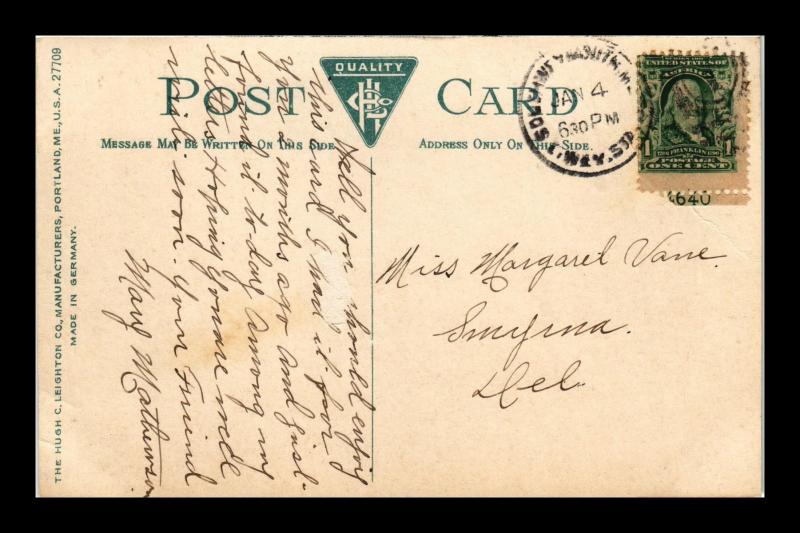 POST CARD
QUALITY
MESSAGE MAY BE WRITTEN ON THIS SIDE.
ADDRESS ONLY ON THIS SIDE.
THE HUGH C. LEIGHTON CO., MANUFACTURERS, PORTLAND, ME., U.S.A. 27709
MADE IN GERMANY.
Well you should enjoy
this card I had it for
you 2 months ago and just
found it to day among my
letters Hoping you are
well soon. Your Friend
Mary Mathewson
JAN 4
630 PM
UNITED STATES OF
AMERICA
FRANKLIN
1 1
POSTAGE
ONE CENT
640
Miss Margaret Vane
Smyrna.
Del.